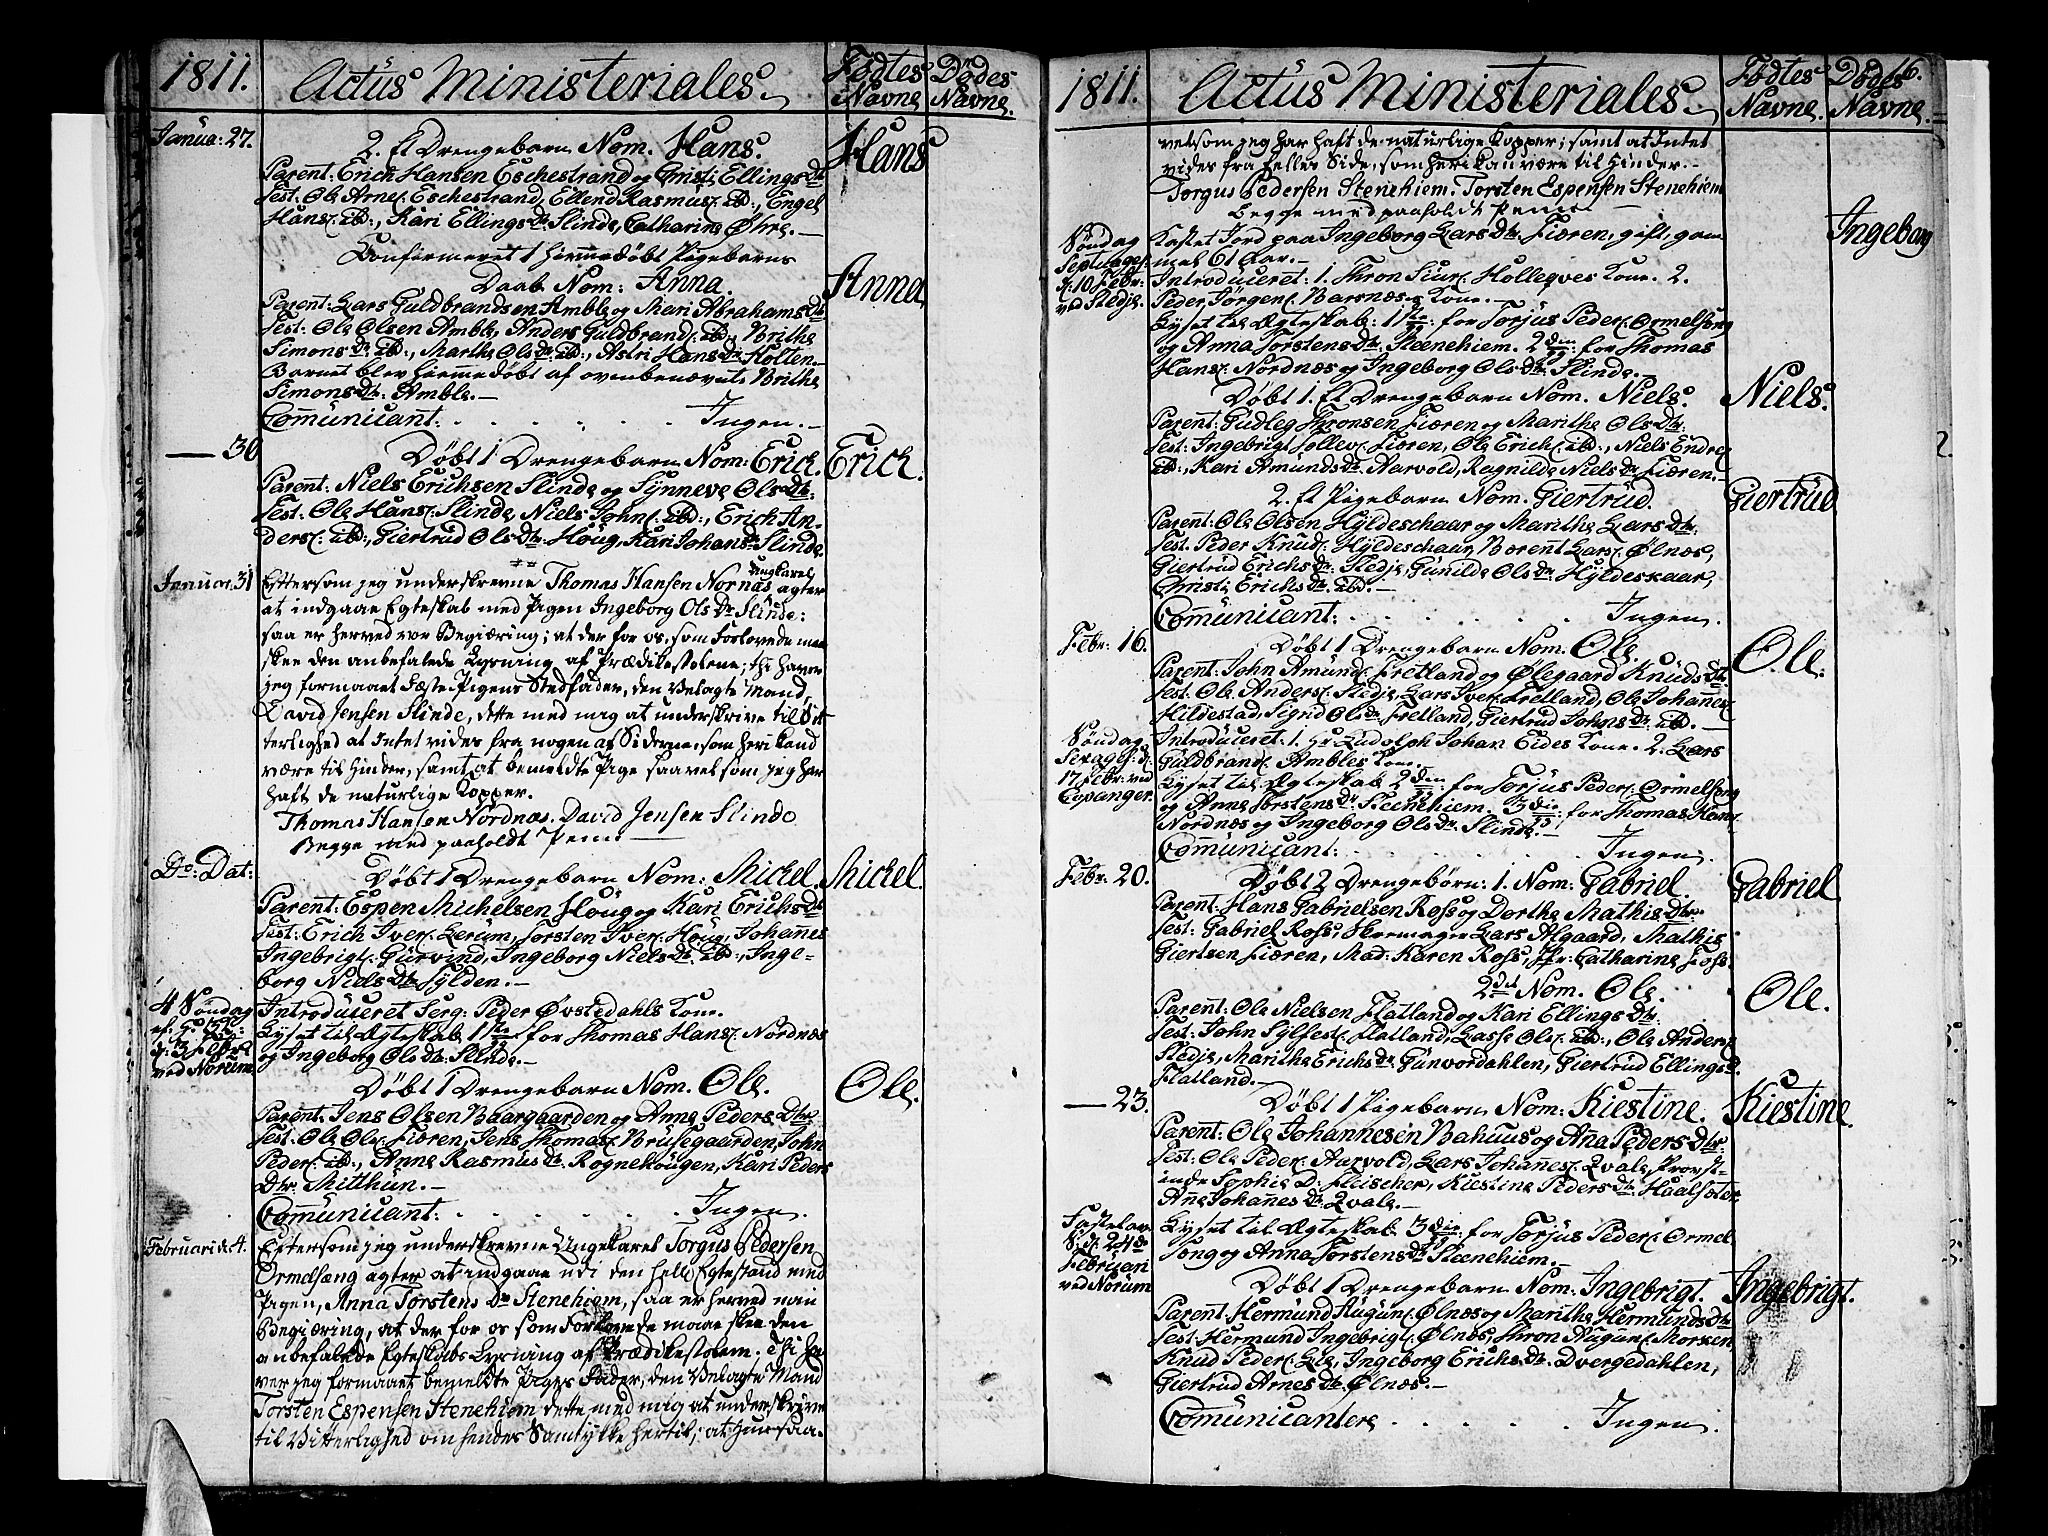 1811. Actus Ministeriales. Fødtes Navne Dødes Navne.
Janua: 27. 2. Et Drengebarn Nom. Hans. Hans
Parent: Erich Hansen Eschestrand og Christi Ellings Dtr
Test: Ole Arnes. Eschestrand, Ellend Rasmus. ibd:, Engel
Hans. ibd:, Kari Ellings Dr Slinde, Catharina Øhre.
Confirmeret 1 hiemmedøbt Pigebarns
Daab Nom: Anna. Anna
Parent: Lars Guldbrandsen Amble og Mari Abrahams Dtr
Test: Ole Olsen Amble Anders Guldbrands. ibd:, Brithe
Simons Dr. ibd:, Marthe Ols Dr. ibd:, Astri Hans Dr Holten.
Barnet blev hiemmedøbt af ovenbenævnte Brithe
Simons Dtr. Amble.
Comunicant: . . . . . . Ingen.
— 30 Døbt 1 Drengebarn Nom: Erich. Erich.
Parent: Niels Erichsen Slinde og Synneve Ols Dtr:
Test: Ole Hans. Slinde, Niels Johns. ibd:, Erich An-
ders. ibd:, Giertrud Ols Dtr Houg, Kari Johans Dr Slinde.
Januar. 31 Eftersom jeg underskrevne Ungkarel Thomas Hansen Nornæs agter
at indgaae Egteskab med Pigen Ingeborg Ols Dr Slinde:
saa er herved vor Begiæring; at der for os, som Forlovede maae
skee den anbefalede Lysning af Prædikestolene; thi haver
jeg formaaet Fæste Pigens Stedfader, den Velagte Mand,
David Jensen Slinde, dette med mig at underskrive til Vit-
terlighed at Intet vides fra nogen af Siderne, som heri kand
være til Hinder, samt at bemeldte Pige saavel som jeg har
haft de naturlige Kopper.
Thomas Hansen Nordnæs. David Jensen Slinde
Begge med paaholdt Penn
Do: Dat: Døbt 1 Drengebarn Nom: Mickel. Mickel.
Parent: Espen Michelsen Houg og Kari Erichs Dtr
Test: Erich Ivers. Lerum, Torsten Ivers. Houg, Johannes
Ingebrigts. Gurvind, Ingeborg Niels Dr. ibd:, Inge-
borg Niels Dtr Sylden.
4 Søndag Introduceret Serg: Peder Øvstedahls Kone.
Lyset til Ægteskab 1ste for Thomas Hans. Nordnæs
d: 3 Febr. og Ingeborg Ols Dtr. Slinde.
ved Norum Døbt 1 Drengebarn Nom. Ole. Ole.
Parent: Jens Olsen Baargaarden og Anna Peders Dtr.
Test: Ole Ols. Fiæren, Jens Thomas. Brusegaarden, John
Peders. ibd:, Anne Rasmus Dr. Rognehougen, Kari Peders
Dtr. Mitthun.
Comunicant: . . . . . . Ingen.
Februarii d. 4. Eftersom jeg underskrevne Ungekarel Torgus Pedersen
Ormelsæng agter at indgaae udi den hell: Egtestand med
Pigen, Anna Torstens Dr Stenehiem, saa er herved min
Begiæring, at der for os som Forlovede maae skee den
anbefalede Egteskabs Lysning af Prædikestolem. Thi ha-
ver jeg formaaet bemeldte Piges Fader, den Velagte Mand
Torsten Espensen Stenehiem dette med mig at underskrive
til Vitterlighed om hendes Samtykke hertil; at hun saa-
1811. Actus Ministeriales. Fødtes Navne. Dødes Navne. 16.
vel som jeg har haft de naturlige Kopper; samt at Intet
vides fra Felles Side, som heri kan være til Hinder.
Torgus Pedersen Stenehiem. Torsten Espensen Stenehiem
begge med paaholdt Penn
Søndag Kastet Jord paa Ingeborg Lars Dtr. Fiæren, gift, gam Ingeborg
Septuages mel 61 Aar.
d. 10 Febr: Introduceret: 1. Thron Siurs. Hollegves Kone. 2.
ved Stedje. Peder Jørgens. Barsnæs Kone.
Lyset til Ægteskab: 1ste for Torjus Peders. Ormelsong
og Anna Torstens Dtr. Steenehiem. 2den for Thomas
Hans. Nordnæs og Ingeborg Ols Dtr. Slinde.
Døbt 1. Et Drengebarn Nom. Niels. Niels.
Parent: Gudleg Thronsen Fiæren og Marithe Ols Dtr:
Test: Ingebrigt Tollevs. Fiæren, Ole Erichs. ibd:, Niels Endres.
ibd:, Kari Amunds Dr. Aarvold, Ragnilde Niels Dr. Fiæren.
2. Et Pigebarn Nom. Giertrud. Giertrud
Parent: Ole Olsen Hyldeschaar og Marithe Lars Dtr.
Test. Peder Knuds. Hyldeschaar, Berent Lars. Ølnæs,
Giertrud Erichs Dr. Stedje, Gunilde Ols Dr. Hyldeskaar,
Christi Erichs Dr. ibd.
Comunicant: . . . . . . Ingen.
Febr: 16. Døbt 1 Drengebarn Nom: Ole. Ole.
Parent: John Amunds. Fretland og Ølegaard Knuds Dtr.
Test. Ole Anders. Stedje, Lars Ivers. Fretland, Ole Johannes.
Hildestad, Sigrid Ols Dr. Fretland, Giertrud Johns Dr. ibd.
Søndag Introduceret: 1. Hr Ludolph Johan Eides Kone. 2. Lars
Sexages: d: Guldbrands. Ambles Kone.
17 Febr: ved Lyset til Ægteskab 2den for Torjus Peders. Ormelsong
Copanger. og Anna Torstens Dr. Steenehiem. 3die for Thomas Hans.
Nordnæs og Ingeborg Ols Dr. Slinde.
Comunicant: . . . . . . Ingen.
Febr. 20. Døbt 2 Drengebørn: 1. Nom: Gabriel. Gabriel
Parent: Hans Gabrielsen Ross og Dorthe Mathis Dtr.
Test: Gabriel Ross, Skremager Lars Algaard, Mathis
Giertsen Fiæren, Mad: Karen Ross, Jfr: Catharina Foss.
2det Nom. Ole. Ole.
Parent: Ole Nielsen Flatland og Kari Ellings Dtr.
Test: John Sylfests. Flatland, Lasse Ols. ibd:, Ole Anders.
Stedje, Marithe Erichs Dr Gunvordahlen, Giertrud Ellings D.
Flatland.
— 23. Døbt 1 Pigebarn Nom: Kiestine. Kiestine.
Parent: Ole Johannesen Bahuus og Ana Peders Dtr.
Test: Ole Peders. Aarvold, Lars Johanes. Qvale, Provst-
inde Sophia D: Fleischer, Kiestine Peders Dtr. Haalseter
Ane Johanes Dr. Qvale.
Fastelav. Lyset til Ægteskab 3die for Torjus Peders. Ormel
S. d. 24de song og Anna Torstens Dr Steenehiem.
Februari
ved Norum Døbt 1 Drengebarn Nom: Ingebrigt. Ingebrigt.
Parent: Hermund Auguns. Ølnæs og Marithe Hermunds Dtr
Test: Hermund Ingebrigts. Ølnæs, Thron Auguns. Morken
Knud Peders. Lie, Ingeborg Erichs Dr. Dvergedahlen,
Giertrud Arnes Dr. Ølnæs.
Comunicantere . . . . . Ingen.